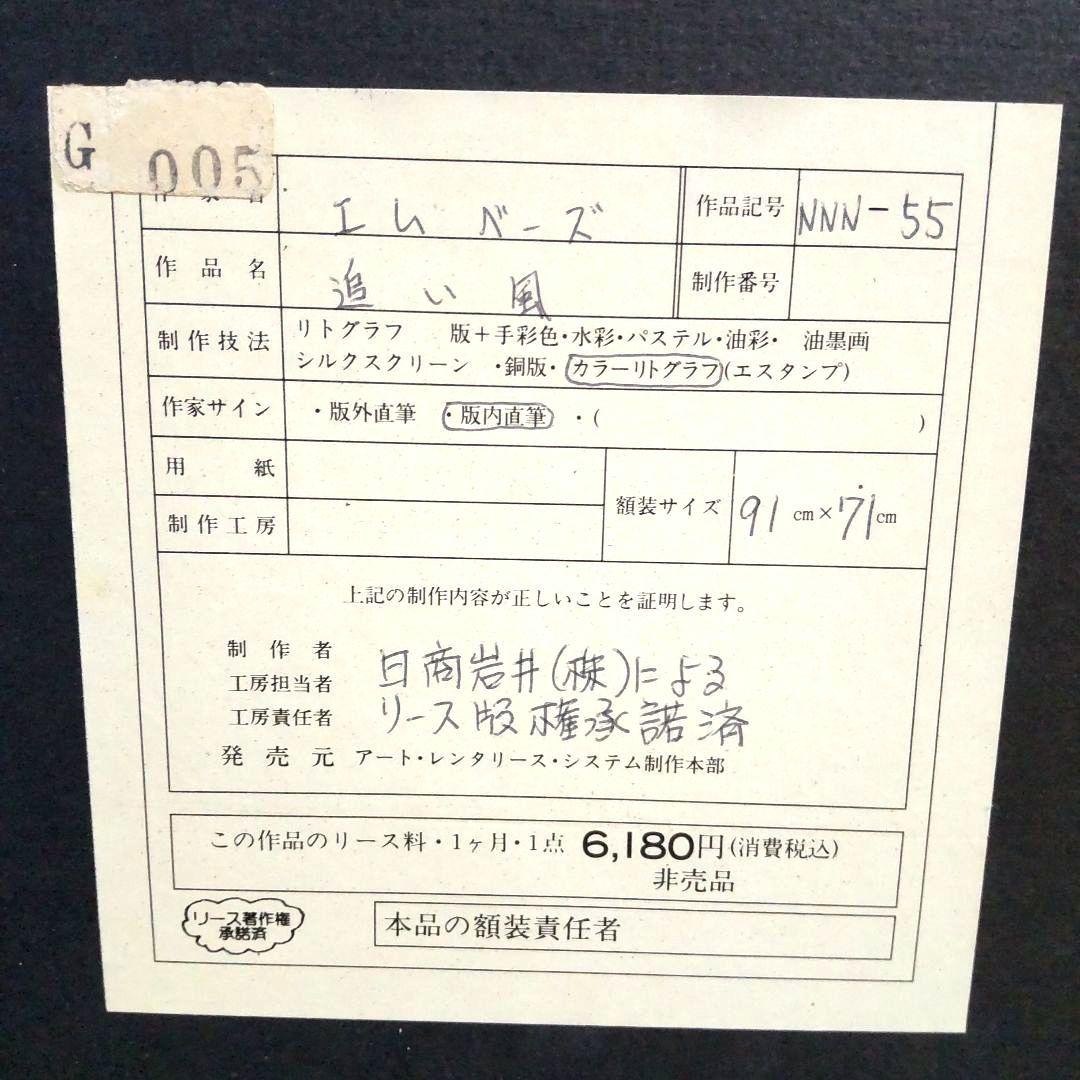 G 005
作家名 エム ベーズ 作品記号 NNN-55
作品名 追い風 制作番号
制作技法 リトグラフ 版+手彩色・水彩・パステル・油彩・ 油墨画
シルクスクリーン ・銅版・カラーリトグラフ(エスタンプ)
作家サイン ・版外直筆 ・版内直筆 ・( )
用紙
額装サイズ 91cm×71cm
制作工房
上記の制作内容が正しいことを証明します。
制作者 日商岩井(株)による
工房担当者
工房責任者 リース版権承諾済
発売元 アート・レンタリース・システム制作本部
この作品のリース料・1ヶ月・1点 6,180円(消費税込)
非売品
リース著作権
承諾済
本品の額装責任者